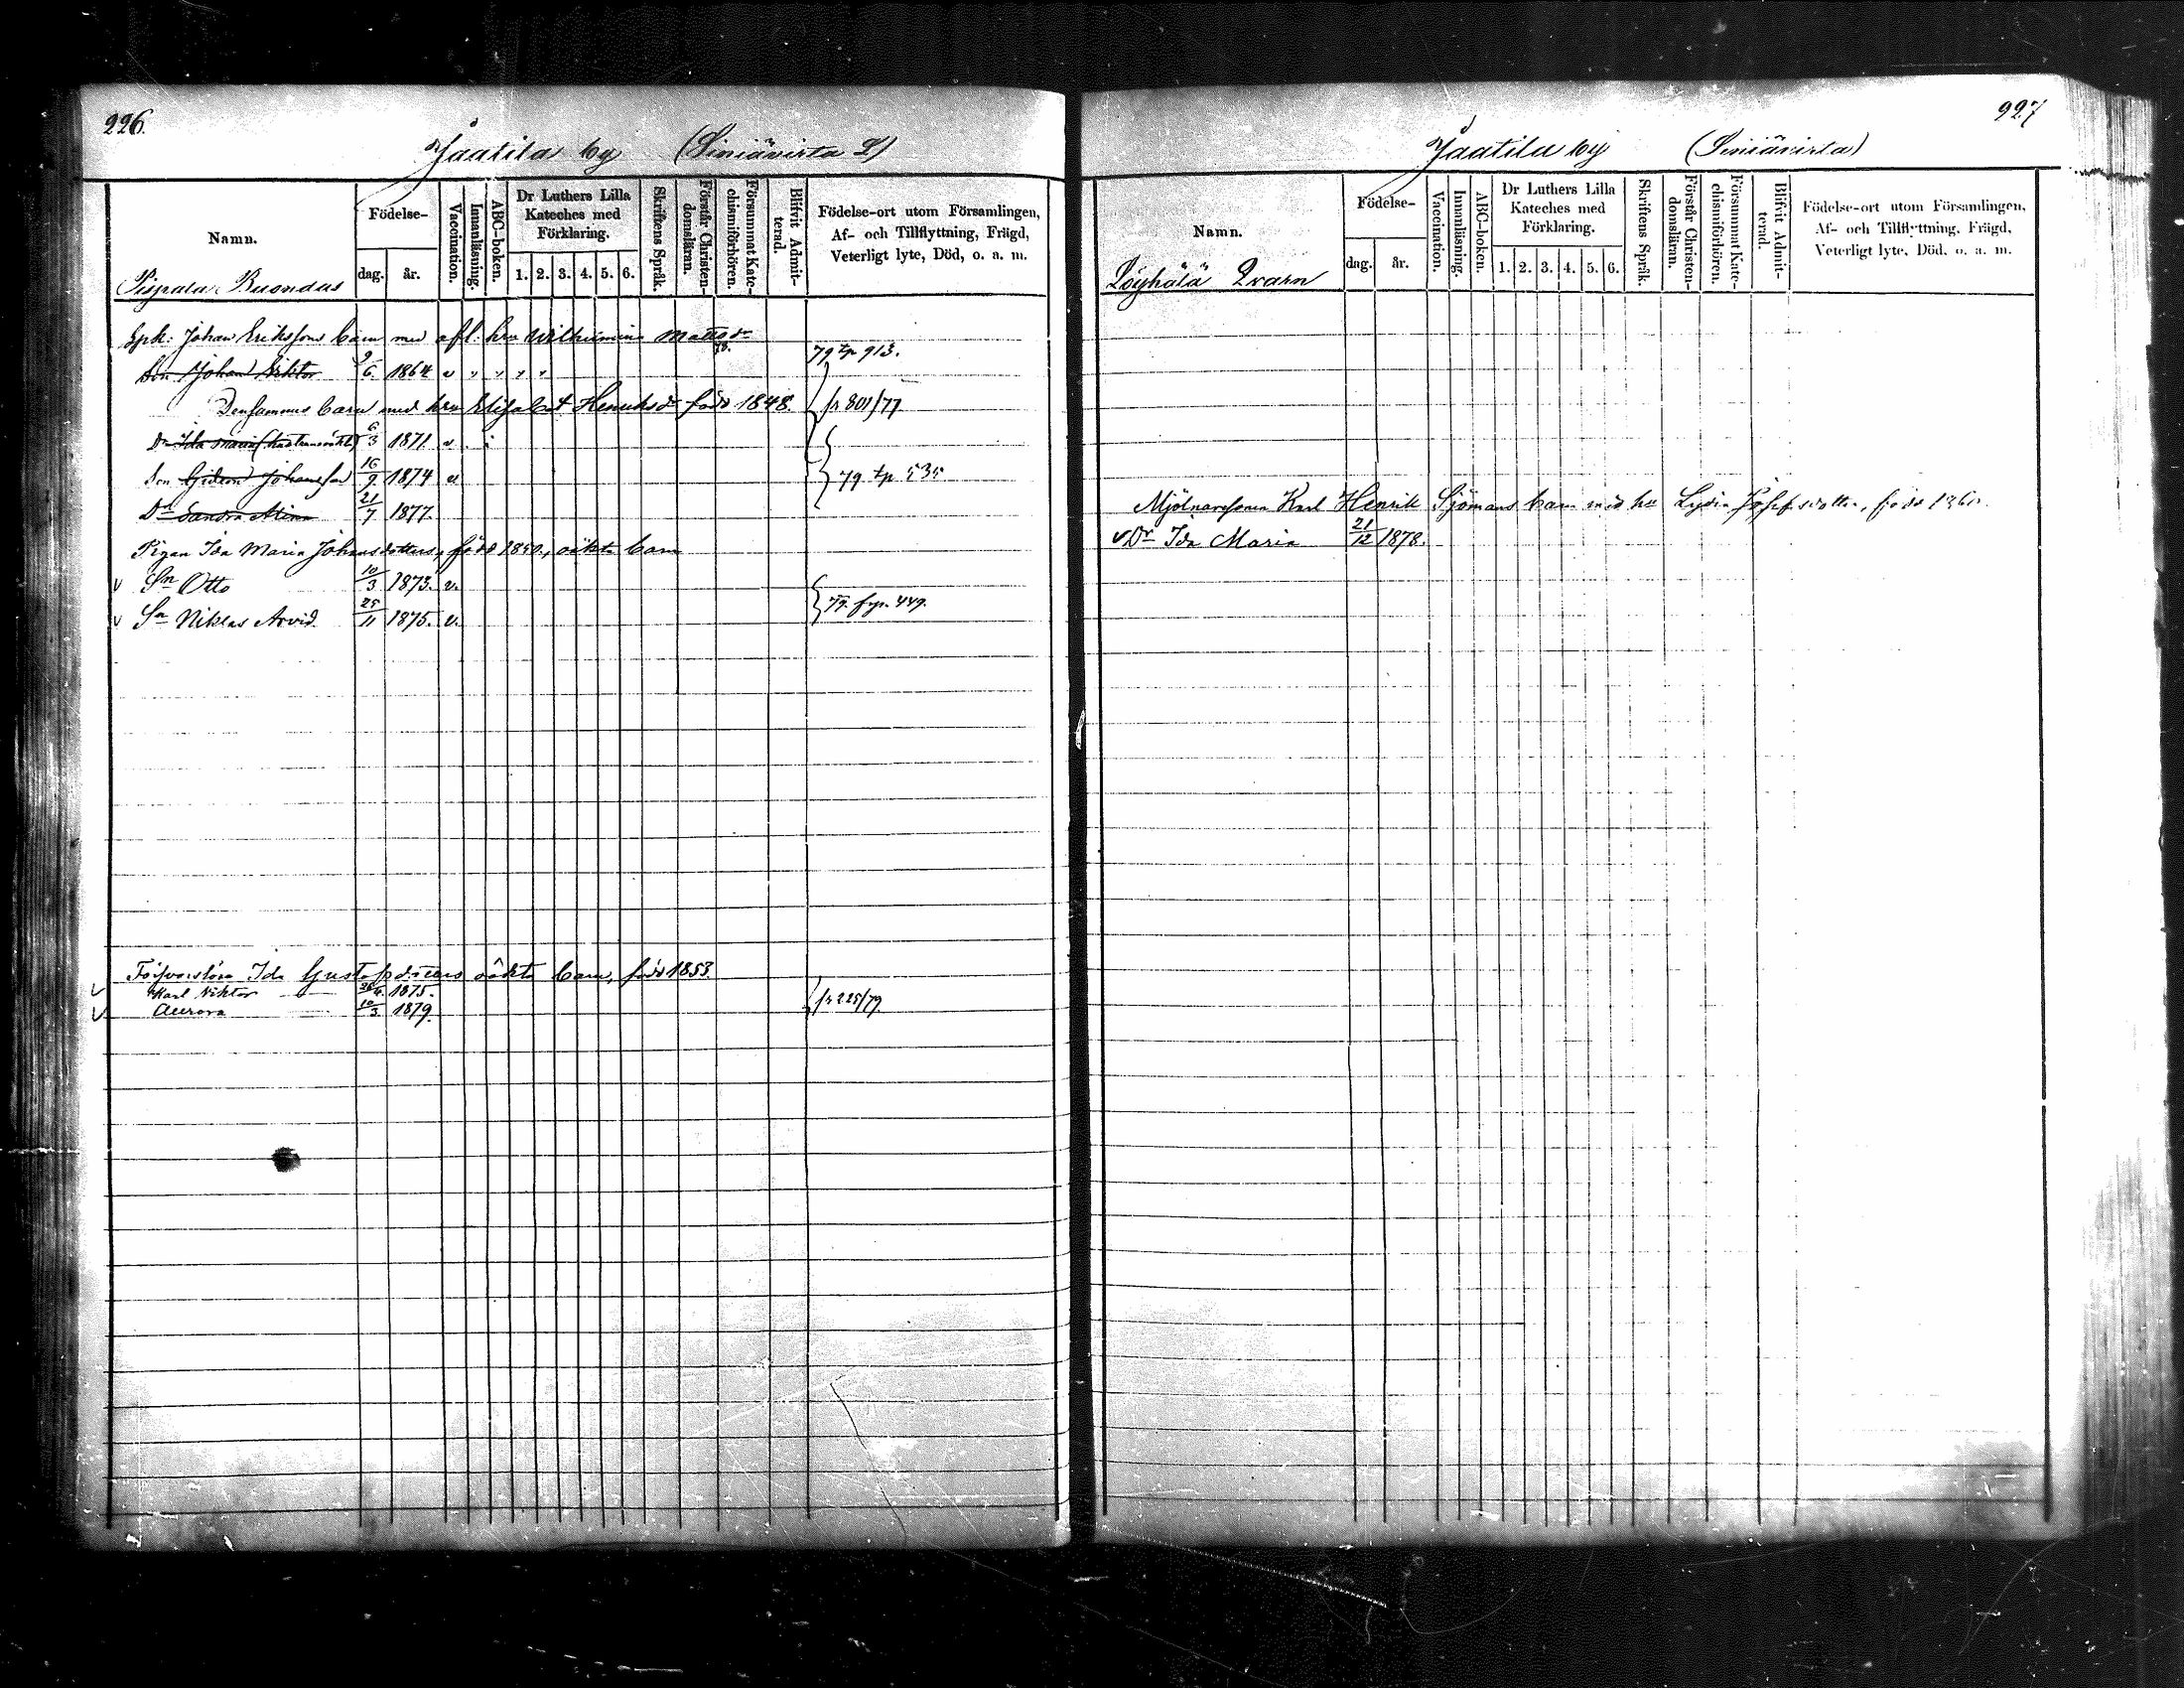 226.
Jaatila by (Siniävirta L)
Namn.
Födelse-
dag.
år.
Vaccination.
Innanläsning.
ABC-boken.
Dr Luthers Lilla
Kateches med
Förklaring.
1. 2. 3. 4. 5. 6.
Skriftens Språk.
Förstår Christen-
domsläran.
Försummat Kate-
chismiförhören.
Blifvit Admit-
terad.
Födelse-ort utom Församlingen,
Af- och Tillflyttning, Frägd,
Veterligt lyte, Död, o. a. m.
Pispala Buondas
Spk: Johan Erikssons barn med afl. hru Wilhelmina Mattsdr
Son Johan Viktor 9/6 1864 v 79 tp 913.
Densammes barn med hru Elisabet Henriksdr född 1848. fr 801/77
Dr Ida Maria 6/3 1871. v
Son Gideon Johansson 16/9 1874 v 79 tp 535
Dr Sandra Mina 21/7 1877.
Pigan Ida Maria Johansdotters, född 1850, oäkta barn
v Sn Otto 10/3 1873. v.
v Sn Niklas Arvid. 25/11 1875. v. 79. fr p. 449.
Ida Gustafsdotters oäkta barn, född 1853.
v Karl Viktor 1875.
v Aurora 10/3 1879. fr 225/79
227
Jaatila by (Siniävirta)
Namn.
Födelse-
dag.
år.
Vaccination.
Innanläsning.
ABC-boken.
Dr Luthers Lilla
Kateches med
Förklaring.
1. 2. 3. 4. 5. 6.
Skriftens Språk.
Förstår Christen-
domsläran.
Försummat Kate-
chismiförhören.
Blifvit Admit-
terad.
Födelse-ort utom Församlingen,
Af- och Tillflyttning, Frägd,
Veterligt lyte, Död. o. a. m.
Löyhälä Qvarn
Mjölnaresonen Karl Henrik Sjömans barn med hu Lydia Josefsdotter, född 1860.
v Dr Ida Maria 21/12 1878.